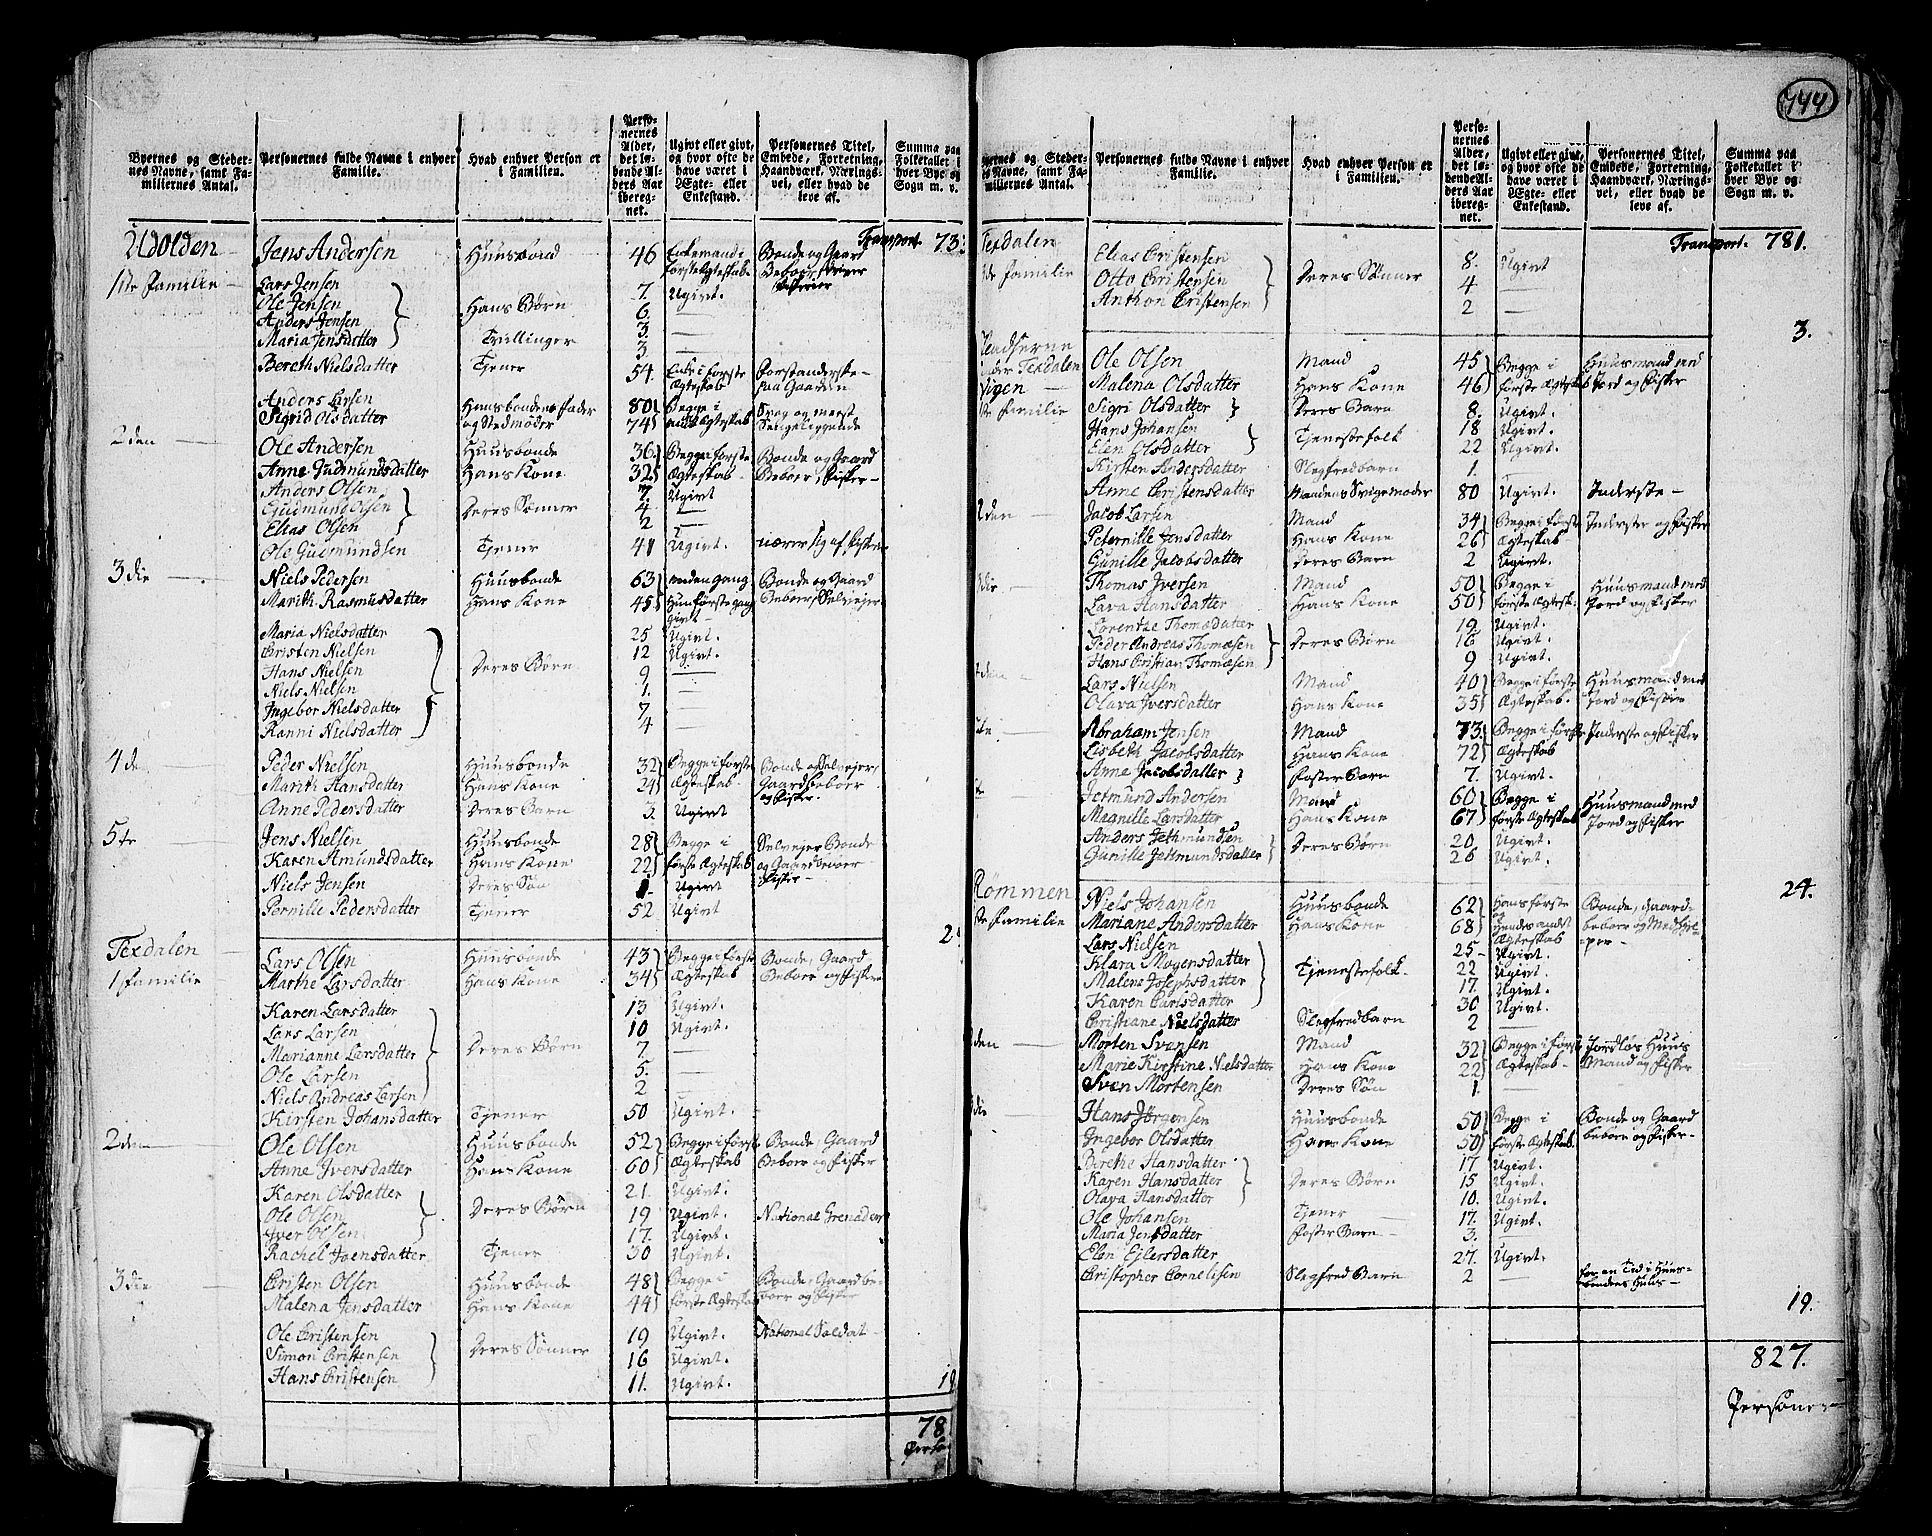 744
Byernes og Steder-
nes Navne, samt Fa-
miliernes Antal.
Personernes fulde Navne i enhver
Familie.
Hvad enhver Person er
i Familien.
Perso-
nernes
Alder,
det lø-
bende Al-
ders Aar
iberegnet.
Ugivt eller givt,
og hvor ofte de
have været i
Ægte- eller
Enkestand.
Personernes Titel,
Embede, Forretning,
Haandværk, Nærings-
vei, eller hvad de
leve af.
Summa paa
Folketallet i
hver Bye og
Sogn m. v.
Transport. 73
Udolden Jens Andersen Huusbond 46 Enkemand i Bonde og Gaard
første Ægteskab Beboer,
1ste Familie Lars Jensen 7. Ugivt.
Ole Jensen Hans Børn 6. —
Anders Jensen 3. —
Maria Jensdatter Trillinger 3 —
Bereth Nielsdatter Tjener 54. Enke i første Forstanderske
Ægteskab paa Gaarden
Anders Larsen Huusbondens Fader 80 Begge i Svag og meest
Sigrid Olsdatter og Stedmoder 74 Ægteskab Sengeliggende
2den Ole Andersen Huusbonde 36. Begge i første Bonde og Gaard
Anne Gudmundsdatter Hans Kone 32 Ægteskab Beboer, Fisker
Anders Olsen 7. Ugivt
Gudmund Olsen Deres Sønner 4. —
Elias Olsen 2 —
Ole Gudmundsen Tjener 41 Ugivt. nærer sig af Fisker
3die Niels Pedersen Huusbonde 63 anden gang Bonde og Gaard
Marith Rasmusdatter Hans Kone 45 Hun første gang Beboer, Selvejer
givt
Maria Nielsdatter 25 Ugivt.
Cristen Nielsen 12 Ugivt.
Hans Nielsen Deres Børn 9 —
Niels Nielsen 1. —
Ingebor Nielsdatter 7 —
Ranni Nielsdatter 4 —
4de Peder Nielsen Huusbonde 32 Begge i første Bonde Selvejer,
Marith Hansdatter Hans Kone 24 Ægteskab. Gaardbeboer
og Fisker.
Anne Pedersdatter Deres Barn 3. Ugivt
5te Jens Nielsen Huusbonde 28 Begge i Selvejer Bonde
Karen Amundsdatter Hans Kone 22 første Ægteskab og Gaardbeboer
Fisker
Niels Jensen Deres Søn Ugivt
Pernille Pedersdatter Tjener 52 Ugivt
2
Texdalen Lars Olsen Huusbonde 43 Begge i første Bonde, Gaard
1 Familie Marthe Larsdatter Hans Kone 34 Ægteskab Beboer og Fisker
Karen Larsdatter 13 Ugivt.
Lars Larsen 10 Ugivt.
Marianne Larsdatter Deres Børn 7. —
Ole Larsen 5. —
Niels Andreas Larsen 2
Kirsten Johansdatter Tjener 50 Ugivt.
2den Ole Olsen Huusbonde 52 Begge i første Bonde, Gaard
Anne Iversdatter Hans Kone 60 Ægteskab Beboer og Fisker
Karen Olsdatter 21. Ugivt.
Ole Olsen Deres Børn 19 Ugivt. National Grenader
Iver Olsen 17. Ugivt.
Rachel Joensdatter Tjener 30 Ugivt.
3die Cristen Olsen Huusbonde 48 Begge i Bonde, Gaardbe-
Malena Jensdatter Hans Kone 44 første Ægteskab boer og Fisker
Ole Cristensen 19 Ugivt. National Soldat
Simon Cristensen Deres Sønner 16 Ugivt.
Hans Cristensen 11. Ugivt.
19
78
Perso
Byernes og Steder-
nes Navne, samt Fa-
miliernes Antal.
Personernes fulde Navne i enhver
Familie.
Hvad enhver Person er
i Familien.
Perso-
nernes
Alder,
det lø-
bende Al-
ders Aar
iberegnet.
Ugivt eller givt,
og hvor ofte de
have været i
Ægte- eller
Enkestand.
Personernes Titel,
Embede, Forretning,
Haandværk, Nærings-
vei, eller hvad de
leve af.
Summa paa
Folketallet i
hver Bye og
Sogn m. v.
Transport. 781.
Texdalen Elias Cristensen 8. Ugivt
3de Familie Otto Cristensen Deres Sønner 4 —
Anthon Cristensen 2 —
3.
Pladserne
under Texdalen Ole Olsen Mand 45 Begge i Huusmand med
Vigen Malena Olsdatter Hans Kone 46 første Ægteskab Jord og Fisker
1ste Familie Sigri Olsdatter Deres Barn 8. Ugivt.
Hans Johansen Tjenestefolk 18 Ugivt.
Elen Olsdatter 22 Ugivt.
Kirsten Andersdatter Slegfredbarn 1. —
Anne Cristensdatter Mandens Svigemoder 80 Ugivt. Inderste
2den Jacob Larsen Mand 34 Begge i første Inderste og Fisker
Peternille Jensdatter Hans Kone 26 Ægteskab
Gunille Jacobsdatter Deres Barn 2 Ugivt.
3die Thomas Iversen Mand 50 Begge i Huusmand med
Lava Hansdatter Hans Kone 50 første Ægtesk. Jord og Fisker
Lorentze Thomædatter 19. Ugivt.
Peder Andreas Thomæsen Deres Børn 16 Ugivt.
Hans Cristian Thomæsen 9 Ugivt.
4den Lars Nielsen Mand 40 Begge i første Huusmand med
Olava Iversdatter Hans Kone 35 Ægteskab. Jord og Fisker
5te Abraham Jensen Mand 73 Begge i første Inderste og Fisker
Lisbeth Jacobsdatter Hans Kone 72 Ægteskab
Anne Jacobsdatter Foster Barn 7. Ugivt.
6te Jetmund Andersen Mand 60 Begge i Huusmand med
Meanille Larsdatter Hans Kone 67 første Ægteskab Jord og Fisker
Anders Jethmundsen Deres Børn 20. Ugivt.
Gunille Jethmundsdatter 26 Ugivt.
24.
Rømmen Niels Johansen Huusbonde 62 Hans første Bonde, Gaard-
1ste Familie Mariane Andersdatter Hans Kone 68 og Hendes andet beboer og Medhjel-
Ægteskab per
Lars Nielsen 25 Ugivt.
Klara Mogensdatter Tjenestefolk 22 Ugivt.
Malene Josephsdatter 17. Ugivt.
Karen Carlsdatter 30 Ugivt.
Cristiane Nielsdatter Slegfredbarn 2 —
2den Morten Svensen Mand 32 Begge i første Jordløs Huus
Marie Kirstine Nielsdatter Hans Kone 22 Ægteskab Mand og Fisker
Sven Mortensen Deres Søn 1. —
3die Hans Jørgensen Huusbonde 50 Begge i Bonde og Gaard
Ingebor Olsdatter Hans Kone 50 første Ægteskab. beboer og Fisker
Berthe Hansdatter 17 Ugivt.
Karen Hansdatter Deres Børn 15 Ugivt.
Olava Hansdatter 10. Ugivt.
Ole Johansen Tjener 17. Ugivt.
Maria Jensdatter Foster Barn 3. —
Elen Ejlersdatter 27. Ugivt.
Christopher Cornelisen Slegfred Barn 2 — for en Tid i Huus-
bondens Huus
19.
827.
Personer